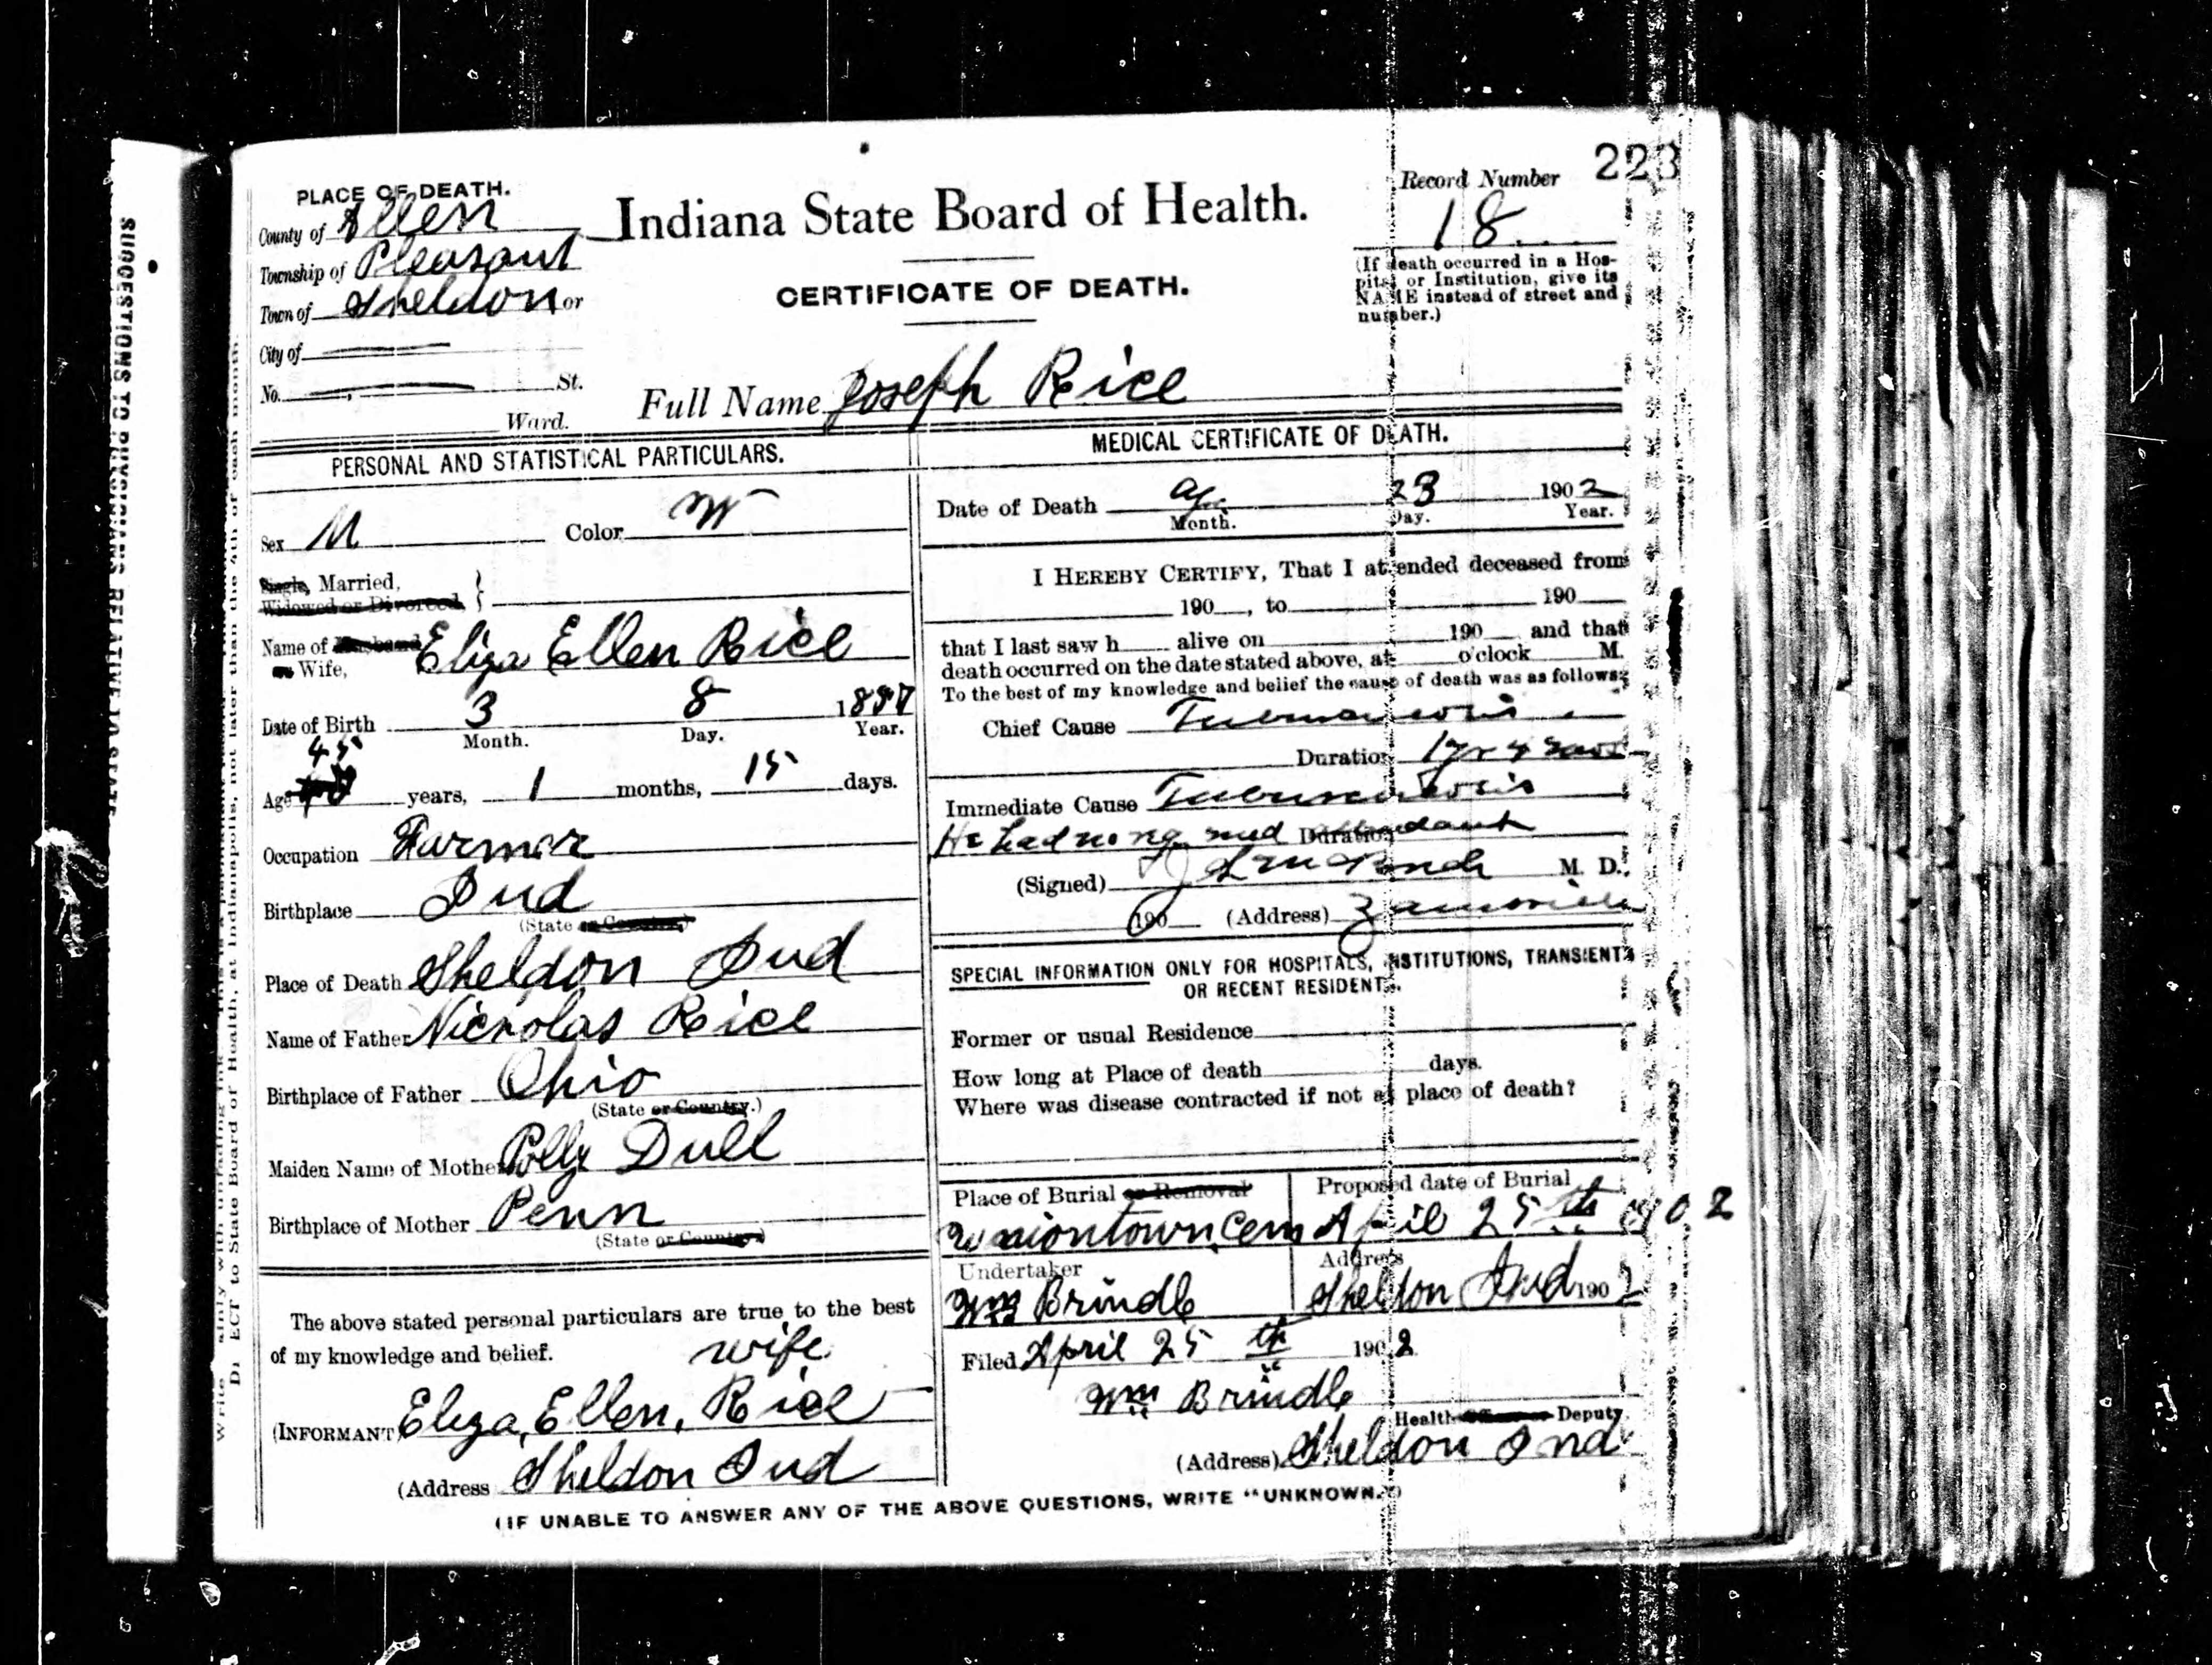 223
PLACE OF DEATH.
County of Allen
Township of Pleasant
Town of Sheldon or
City of
No. St.
Ward.
Indiana State Board of Health.
CERTIFICATE OF DEATH.
Record Number
18
(If death occurred in a Hos-
pital or Institution, give its
NAME instead of street and
number.)
Full Name Joseph Rice
PERSONAL AND STATISTICAL PARTICULARS.
Sex M Color W
Single, Married,
Widowed or Divorced,
Name of Husband Eliza Ellen Rice
or Wife,
Date of Birth 3 8 1857
Month. Day. Year.
45
Age years, 1 months, 15 days.
Occupation Farmer
Birthplace Ind
(State or Country)
Place of Death Sheldon Ind
Name of Father Nickolas Rice
Birthplace of Father Ohio
(State or Country.)
Maiden Name of Mother Polly Dull
Birthplace of Mother Penn
(State or Country)
The above stated personal particulars are true to the best
of my knowledge and belief. wife
(INFORMANT) Eliza, Ellen, Rice
(Address Sheldon Ind
MEDICAL CERTIFICATE OF DEATH.
Date of Death Ap. 23 1902
Month. Day. Year.
I HEREBY CERTIFY, That I attended deceased from
190 , to 190
that I last saw h alive on 190 and that
death occurred on the date stated above, at o'clock M.
To the best of my knowledge and belief the cause of death was as follows:
Chief Cause Tuberculosis
Duration 1 yr
Immediate Cause Tuberculosis
He had no reg med Duration attendant
(Signed) M. D.
190 (Address) Zanesville
SPECIAL INFORMATION ONLY FOR HOSPITALS, INSTITUTIONS, TRANSIENTS
OR RECENT RESIDENTS.
Former or usual Residence
How long at Place of death days.
Where was disease contracted if not at place of death?
Place of Burial or Removal Proposed date of Burial
Uniontown Cem April 25th 1902
Undertaker Address
Wm Brindle Sheldon Ind 1902
Filed April 25th 1902
Wm Brindle
Health Officer or Deputy.
(Address) Sheldon Ind
(IF UNABLE TO ANSWER ANY OF THE ABOVE QUESTIONS, WRITE "UNKNOWN.")